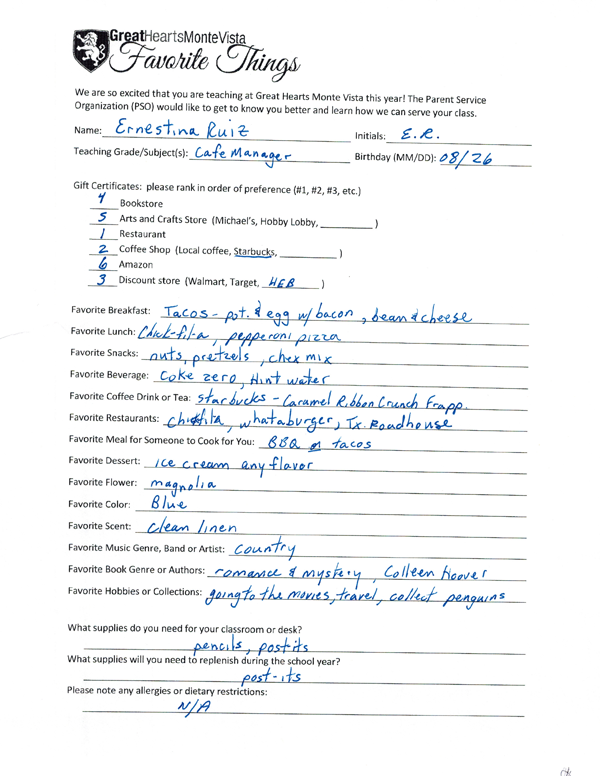 GreatHeartsMonteVista
Favorite Things
We are so excited that you are teaching at Great Hearts Monte Vista this year! The Parent Service
Organization (PSO) would like to get to know you better and learn how we can serve your class.
Name: Ernestina Ruiz Initials: E.R.
Teaching Grade/Subject(s): Cafe Manager Birthday (MM/DD): 08/26
Gift Certificates: please rank in order of preference (#1, #2, #3, etc.)
4 Bookstore
5 Arts and Crafts Store (Michael's, Hobby Lobby, __________ )
1 Restaurant
2 Coffee Shop (Local coffee, Starbucks, __________ )
6 Amazon
3 Discount store (Walmart, Target, HEB )
Favorite Breakfast: Tacos - pot. & egg w/ bacon, bean & cheese
Favorite Lunch: Chick-fil-a, pepperoni pizza
Favorite Snacks: nuts, pretzels, chex mix
Favorite Beverage: Coke zero, Hint water
Favorite Coffee Drink or Tea: Starbucks - Caramel Ribbon Crunch Frapp.
Favorite Restaurants: whataburger, Tx. Roadhouse
Favorite Meal for Someone to Cook for You: BBQ or tacos
Favorite Dessert: ice cream any flavor
Favorite Flower: magnolia
Favorite Color: Blue
Favorite Scent: clean linen
Favorite Music Genre, Band or Artist: country
Favorite Book Genre or Authors: romance & mystery, Colleen Hoover
Favorite Hobbies or Collections: going to the movies, travel, collect penguins
What supplies do you need for your classroom or desk?
pencils, post-its
What supplies will you need to replenish during the school year?
post-its
Please note any allergies or dietary restrictions:
N/A